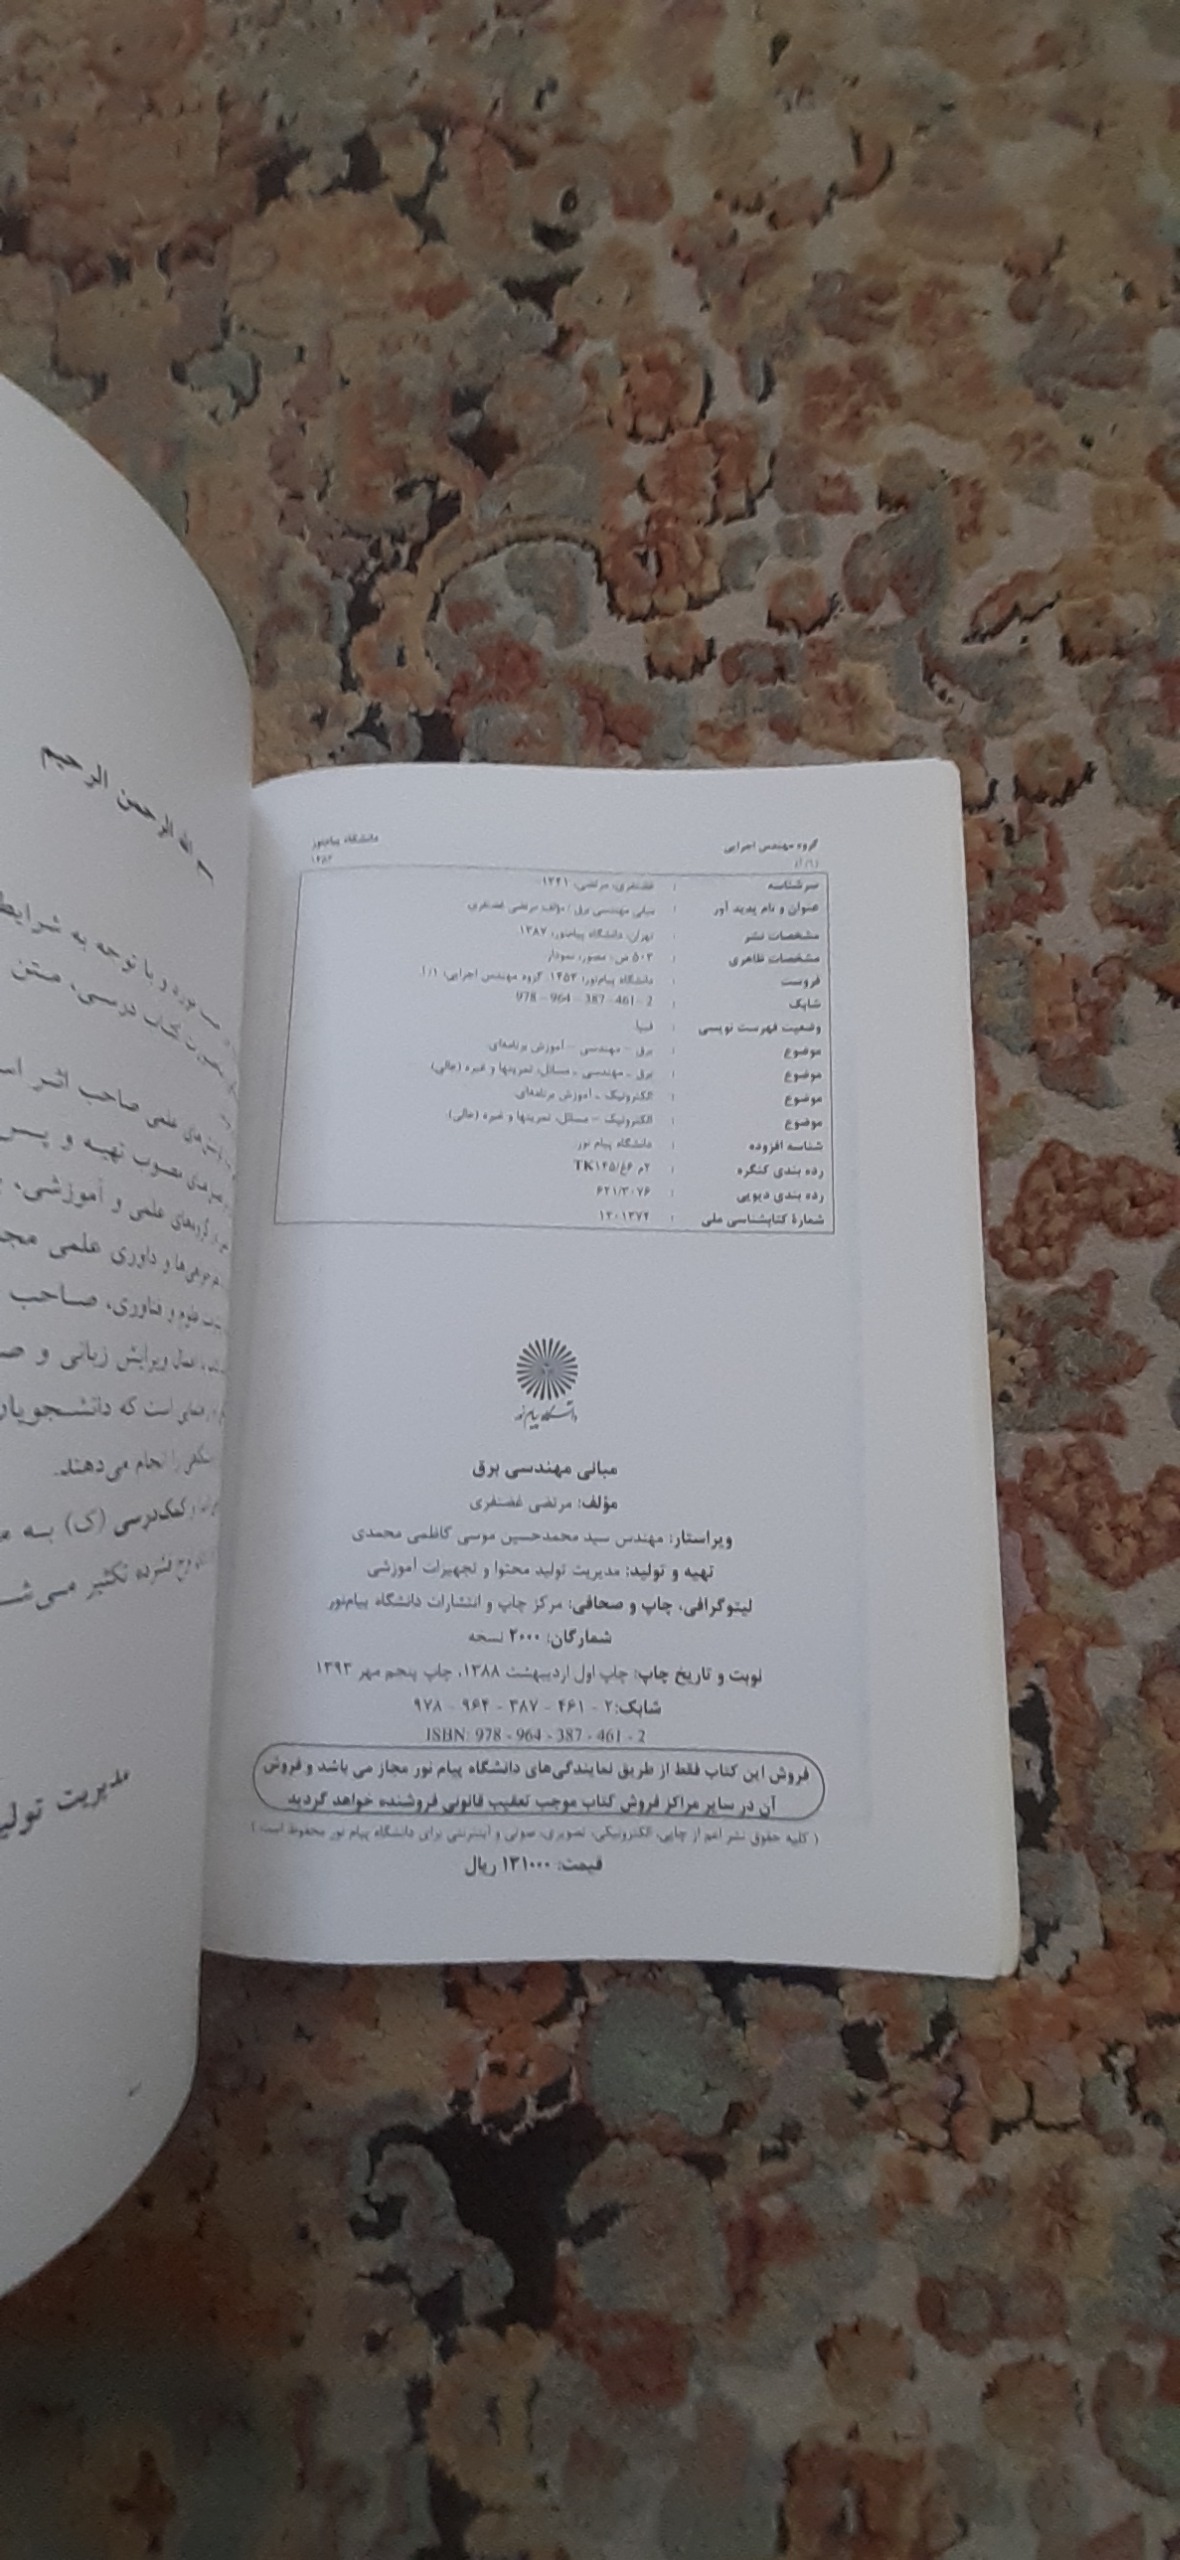 گروه مهندس اجرایی
دانشگاه پیام‌نور
(۱/ آ)
سرشناسه : غضنفری، مرتضی، ۱۳۴۱
عنوان و نام پدید آور : مبانی مهندسی برق / مؤلف مرتضی غضنفری.
مشخصات نشر : تهران، دانشگاه پیام‌نور، ۱۳۸۷
مشخصات ظاهری : ۵۰۳ ص: مصور، نمودار
فروست : دانشگاه پیام‌نور؛ ۱۴۵۳. گروه مهندس اجرایی؛ ۱/ آ.
شابک : 978 - 964 - 387 - 461 - 2
وضعیت فهرست نویسی : فیپا
موضوع : برق - مهندسی - آموزش برنامه‌ای.
موضوع : برق - مهندسی - مسائل، تمرینها و غیره (عالی)
موضوع : الکترونیک - آموزش برنامه‌ای.
موضوع : الکترونیک - مسائل، تمرینها و غیره (عالی).
شناسه افزوده : دانشگاه پیام نور
رده بندی کنگره : ۲م ۶غ/TK۱۴۵
رده بندی دیویی : ۶۲۱/۳۰۷۶
شمارۀ کتابشناسی ملی : ۱۳۰۱۳۷۴
دانشگاه پیام نور
مبانی مهندسی برق
مؤلف: مرتضی غضنفری
ویراستار: مهندس سید محمدحسین موسی کاظمی محمدی
تهیه و تولید: مدیریت تولید محتوا و تجهیزات آموزشی
لیتوگرافی، چاپ و صحافی: مرکز چاپ و انتشارات دانشگاه پیام‌نور
شمارگان: ۲۰۰۰ نسخه
نوبت و تاریخ چاپ: چاپ اول اردیبهشت ۱۳۸۸، چاپ پنجم مهر ۱۳۹۳
شابک: ۲ - ۴۶۱ - ۳۸۷ - ۹۶۴ - ۹۷۸
ISBN: 978 - 964 - 387 - 461 - 2
فروش این کتاب فقط از طریق نمایندگی‌های دانشگاه پیام نور مجاز می باشد و فروش
آن در سایر مراکز فروش کتاب موجب تعقیب قانونی فروشنده خواهد گردید
( کلیه حقوق نشر اعم از چاپی، الکترونیکی، تصویری، صوتی و اینترنتی برای دانشگاه پیام نور محفوظ است )
قیمت: ۱۳۱۰۰۰ ریال
الله الرحمن الرحیم
و با توجه به شرایط
کتاب درسی، متن
علمی صاحب اثر
مصوب تهیه و پس
گروه‌های علمی و آموزشی،
و داوری علمی
علوم و فناوری، صاحب
ویرایش زبانی و
است که دانشجویان
را انجام می‌دهند.
کمک‌درسی (ک) به
فشرده تکثیر می‌شـ
مدیریت تولید